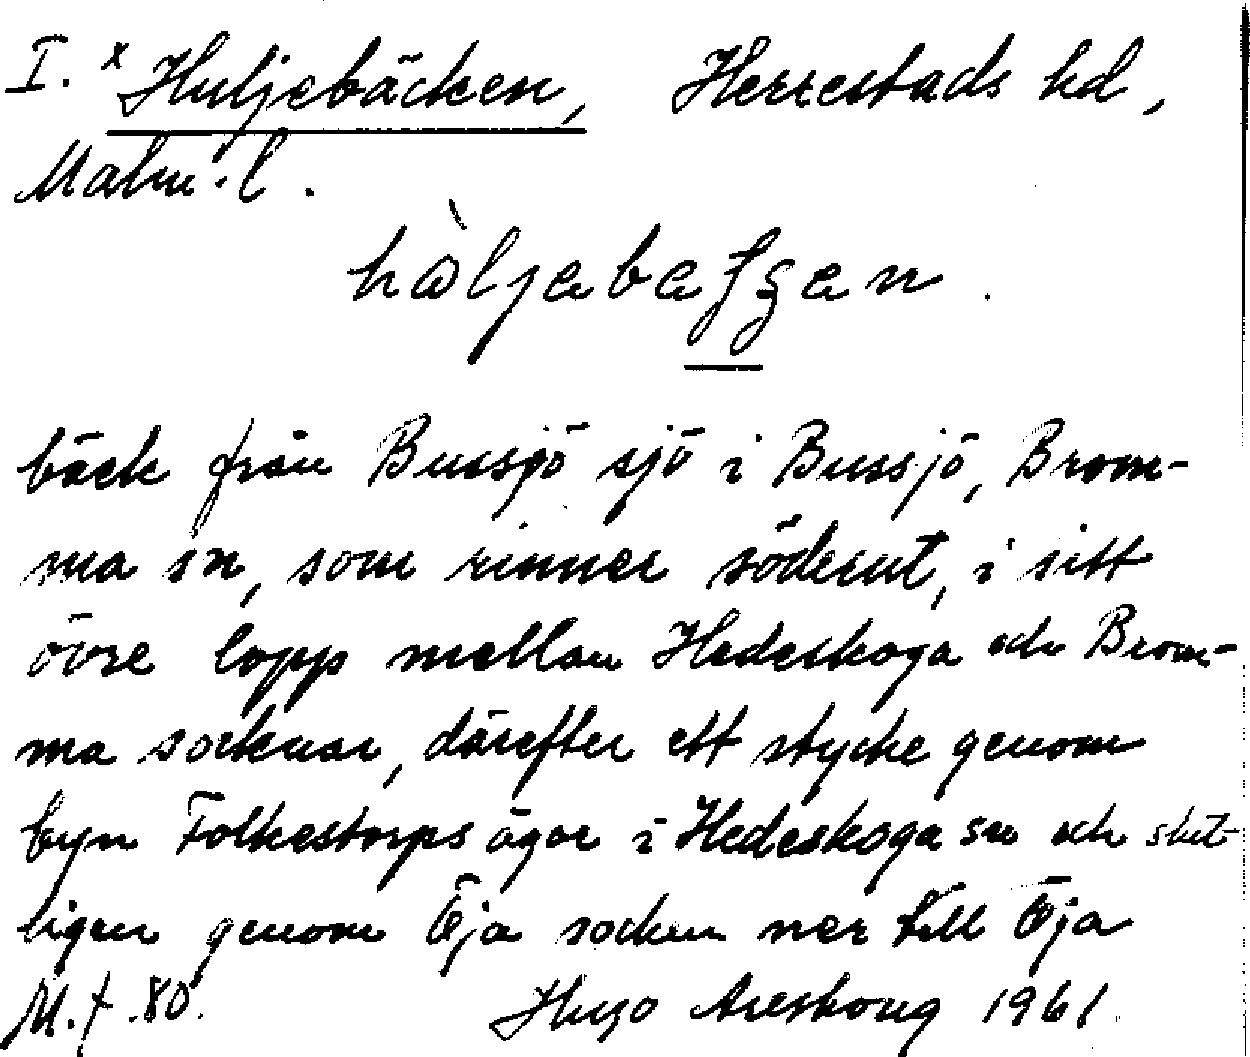 I. x Huljebäcken, Herrestads hd,
Malm. l.
hàljebafgen.
bäck från Bussjö sjö i Bussjö, Brom-
ma sn, som rinner söderut, i sitt
övre lopp mellan Hedeskoga och Brom-
ma socknar, därefter ett stycke genom
byn Folkestorps ägor i Hedeskoga sn och slut-
ligen genom Öja socken ner till Öja
M. f. 80. Hugo Areskoug 1961